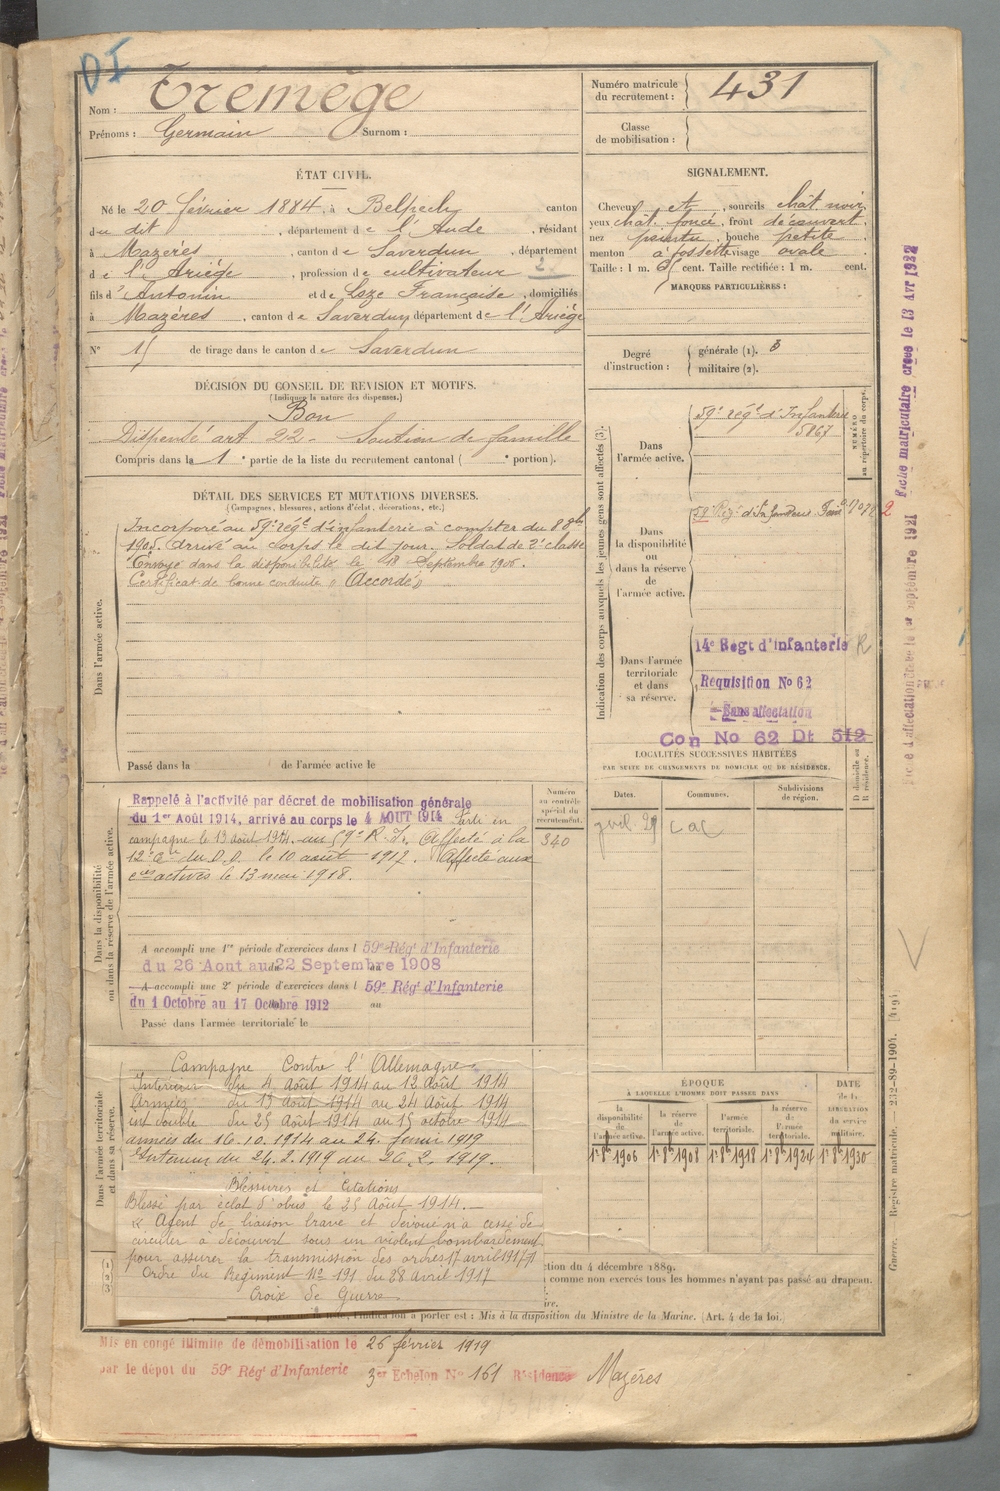 DI
Nom : Trémège
Prénoms : Germain Surnom :
Numéro matricule du recrutement : 431
Classe de mobilisation :
ÉTAT CIVIL.
Né le 20 février 1884, à Belpech canton
du dit, département de l'Aude, résidant
à Mazères, canton de Saverdun, département
de l'Ariège, profession de cultivateur 2
fils d'Antonin et de Loze Françoise, domiciliés
à Mazères, canton de Saverdun, département de l'Ariège
N° 15 de tirage dans le canton de Saverdun
SIGNALEMENT.
Cheveux et, sourcils chât. noir,
yeux chât. foncé, front découvert,
nez pointu, bouche petite,
menton à fossette visage ovale.
Taille : 1 m. cent. Taille rectifiée : 1 m. cent.
MARQUES PARTICULIÈRES :
Degré d'instruction : générale (1). 3
militaire (2).
DÉCISION DU CONSEIL DE REVISION ET MOTIFS.
(Indiquer la nature des dispenses.)
Bon
Dispensé art. 22 - Soutien de famille
Compris dans la 1e partie de la liste du recrutement cantonal ( e portion).
DÉTAIL DES SERVICES ET MUTATIONS DIVERSES.
(Campagnes, blessures, actions d'éclat, décorations, etc.)
Dans l'armée active.
Incorporé au 59e régt d'infanterie à compter du 8 8bre
1905. Arrivé au corps le dit jour. Soldat de 2e classe
Envoyé dans la disponibilité le 18 Septembre 1906.
Certificat de bonne conduite « Accordé »
Passé dans la de l'armée active le
Indication des corps auxquels les jeunes gens sont affectés (3).
NUMÉRO au répertoire du corps.
Dans l'armée active.
59e régt d'Infanterie
5867
Dans la disponibilité ou dans la réserve de l'armée active.
59 Régt d'Infanterie
Dans l'armée territoriale et dans sa réserve.
14e Regt d'infanterie R
Requisition No 62
Sans affectation
Con No 62 Dt 512
LOCALITÉS SUCCESSIVES HABITÉES
PAR SUITE DE CHANGEMENTS DE DOMICILE OU DE RÉSIDENCE.
D domicile ou R résidence.
Dates. Communes. Subdivisions de région.
Dans la disponibilité ou dans la réserve de l'armée active.
Numéro au contrôle spécial du recrutement.
340
Rappelé à l'activité par décret de mobilisation générale
du 1er Août 1914, arrivé au corps le 4 AOUT 1914 Parti en
campagne le 13 août 1914 au 59e R. I. Affecté à la
12e Cie du D.D. le 10 août 1917. Affecté aux
cies actives le 13 mai 1918.
A accompli une 1re période d'exercices dans l 59e Régt d'Infanterie
du 26 Aout au 22 Septembre 1908
A accompli une 2e période d'exercices dans l 59e Régt d'Infanterie
du 1 Octobre au 17 Octobre 1912 au
Passé dans l'armée territoriale le
Dans l'armée territoriale et dans sa réserve.
Campagne Contre l'Allemagne
Intérieur du 4 Août 1914 au 12 Août 1914
Armées du 13 Août 1914 au 24 Août 1914
int double du 25 Août 1914 au 15 octobre 1914
armées du 16.10.1914 au 24 février 1919
Intérieur du 24.2.1919 au 26.2.1919.
Blessures et Citations
Blessé par éclat d'obus le 25 Août 1914.
« Agent de liaison brave et dévoué n'a cessé de
circuler à découvert sous un violent bombardement
pour assurer la transmission des ordres 17 avril 1917 »
Ordre du Régiment N° 191 du 28 avril 1917
Croix de Guerre
ÉPOQUE
À LAQUELLE L'HOMME DOIT PASSER DANS
la disponibilité de l'armée active.
la réserve de l'armée active.
l'armée territoriale.
la réserve de l'armée territoriale.
DATE de la LIBÉRATION du service militaire.
1r 8bre 1906 1r 8bre 1908 1r 8bre 1918 1r 8bre 1924 1r 8bre 1930
(1) (2) (3)
tion du 4 décembre 1889.
comme non exercés tous les hommes n'ayant pas passé au drapeau.
l'indication à porter est : Mis à la disposition du Ministre de la Marine. (Art. 4 de la loi.)
Mis en congé illimité de démobilisation le 26 février 1919
par le dépôt du 59e Régt d'Infanterie 3er Echelon No 161 Résidence Mazères
Fiche matriculaire créée le 13 Avr 1922
Guerre. Registre matricule. — 232-89-1904. [419]